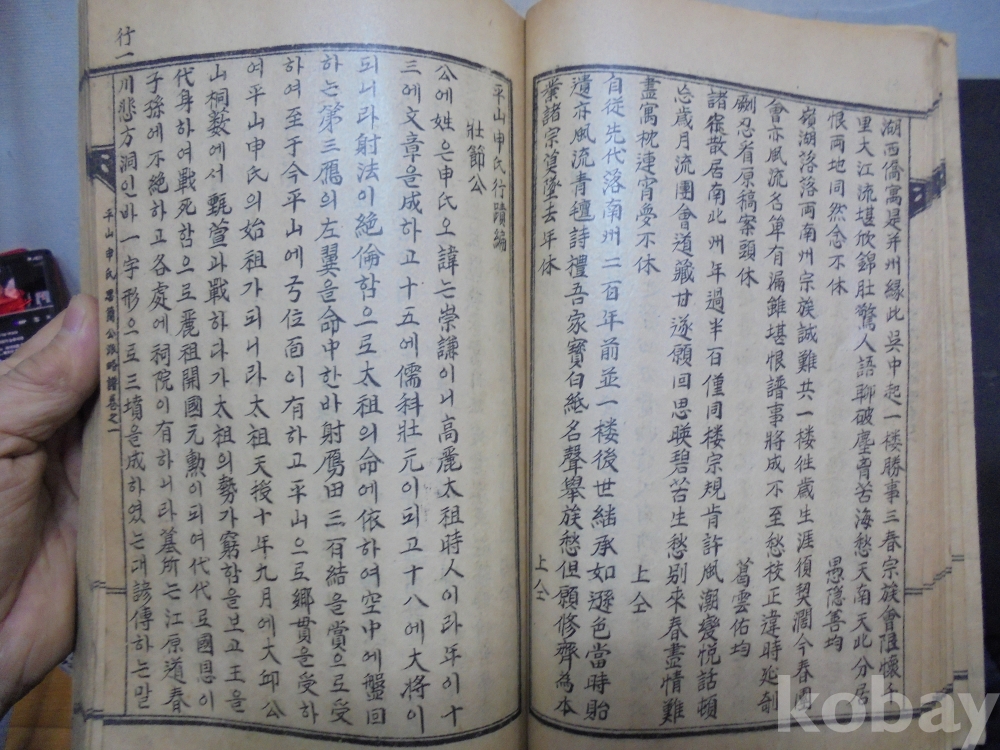 湖西僑寓是并州緣此吳中起一楼勝事三春宗族會阻懷千
里大江流堪欣錦肚驚人語聊破塵肓苦海愁天南天此分居
恨兩地同然念不休
愚隱善均
嶺湖落落两南州宗族誠難共一楼徃歲生涯偵契濶今春團
會亦風流名單有漏雖堪恨譜事將成不至愁校正違時延剞
劂忍看原稿案頭休
葛雲佑均
諸宗散居南北州年過半百僅同楼宗規肯許風潮變悦話頓
忘歲月流團會道藏甘遂願回思暎碧苦生愁别來春盡情難
盡寓枕連宵夢不休
上仝
自從先代落南州二百年前並一楼後世継承如遜色當時貽
遺亦風流青氊詩禮吾家寶白紙名聲舉族愁但願修齊為本
業諸宗莫墜去年休
上仝
平山申氏行蹟編
壯節公
公에姓은申氏오諱는崇謙이니高麗太祖時人이라年이十
三에文章을成하고十五에儒科壯元이되고十八에大將이
되니라射法이絶倫함으로太祖의命에依하여空中에盤回
하는第三鴈의左翼을命中한바射鴈田三百結을賞으로受
하여至于今平山에국位面이有하고平山으로郷貫을受하
여平山申氏의始祖가되니라太祖天授十年九月에大邱公
山桐薮에서甄萱과戰하라가太祖의勢가窮함을보고王을
代身하여戰死함으로麗祖開國元勲이되여代代로國恩이
子孫에不絶하고各處에祠院이有하니라墓所는江原道春
川悲方洞인바一字形으로三墳을成하였는대諺傳하는말
行一
平山申氏思簡公派略譜卷之一
kobay